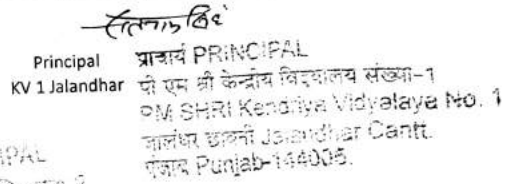 Principal
KV 1 Jalandhar
प्राचार्य PRINCIPAL
पी एम श्री केन्द्रीय विद्यालय संख्या-1
PM SHRI Kendriya Vidyalaya No. 1
जालंधर छावनी Jalandhar Cantt.
पंजाब Punjab-144005.
IPAL